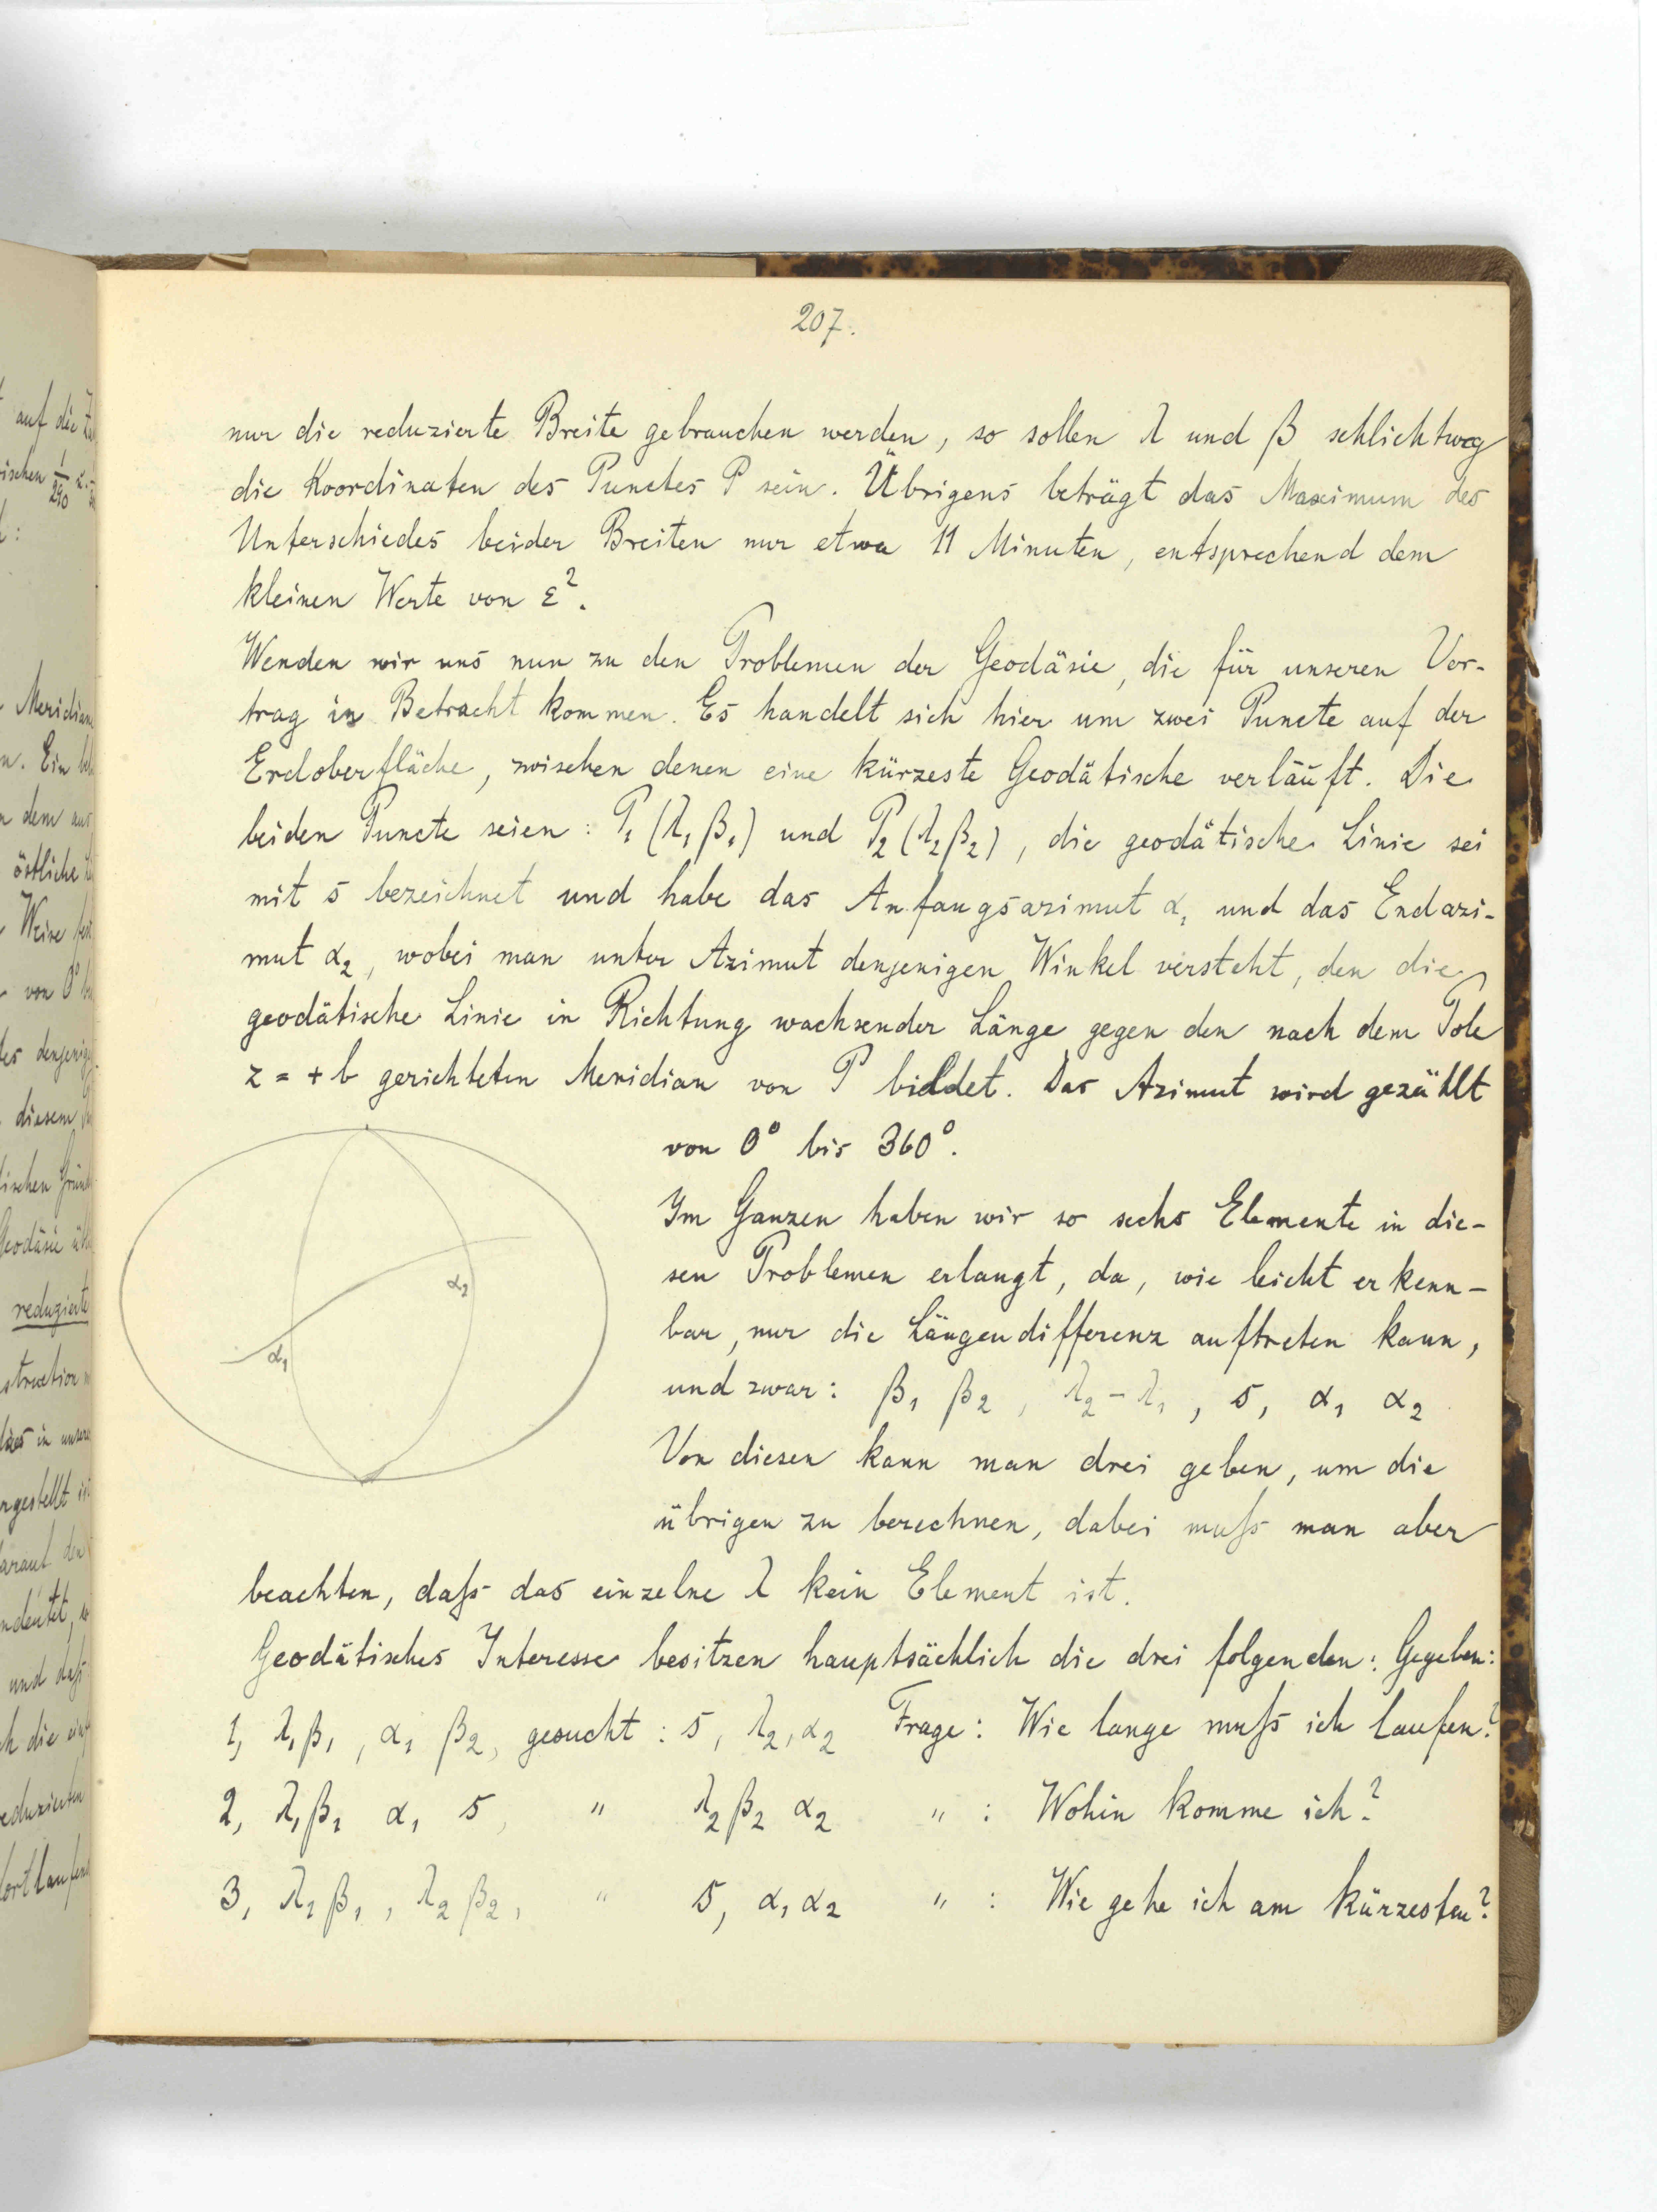 207.
nur die reduzierte Breite gebrauchen werden, so sollen λ und β schlichtweg
die Koordinaten des Punctes P sein. Übrigens beträgt das Maximum des
Unterschiedes beider Breiten nur etwa 11 Minuten, entsprechend dem
kleinen Werte von ε².
Wenden wir uns nun zu den Problemen der Geodäsie, die für unseren Vor-
trag in Betracht kommen. Es handelt sich hier um zwei Puncte auf der
Erdoberfläche, zwischen denen eine kürzeste Geodätische verläuft. Die
beiden Puncte seien: P₁ (λ₁ β₁) und P₂ (λ₂ β₂), die geodätische Linie sei
mit s bezeichnet und habe das Anfangsazimut α₁ und das Endazi-
mut α₂, wobei man unter Azimut denjenigen Winkel versteht, den die
geodätische Linie in Richtung wachsender Länge gegen den nach dem Pole
z = + b gerichteten Meridian von P bildet. Das Azimut wird gezählt
von 0° bis 360°.
Im Ganzen haben wir so sechs Elemente in die-
sen Problemen erlangt, da, wie leicht erkenn-
bar, nur die Längendifferenz auftreten kann,
und zwar: β₁ β₂, λ₂ - λ₁, s, α₁ α₂
Von diesen kann man drei geben, um die
übrigen zu berechnen, dabei muſs man aber
beachten, daſs das einzelne λ kein Element ist.
α₂
α₁
Geodätisches Interesse besitzen hauptsächlich die drei folgenden: Gegeben:
1, λ₁ β₁, α₁ β₂, gesucht: s, λ₂, α₂ Frage: Wie lange muſs ich laufen?
2, λ₁ β₁ α₁ s, " λ₂ β₂ α₂ " : Wohin komme ich?
3, λ₁ β₁, λ₂ β₂, " s, α₁ α₂ " : Wie gehe ich am kürzesten?
auf die
ischen 1/290
Meridian
n. Ein
n dem aus
östliche
Weise
von 0°
des denjenig
diesem
ischen
Geodäsie
reduzierte
struction
in unsere
rgestellt
darauf den
und daſs
h die
eduzierten
fortlaufen